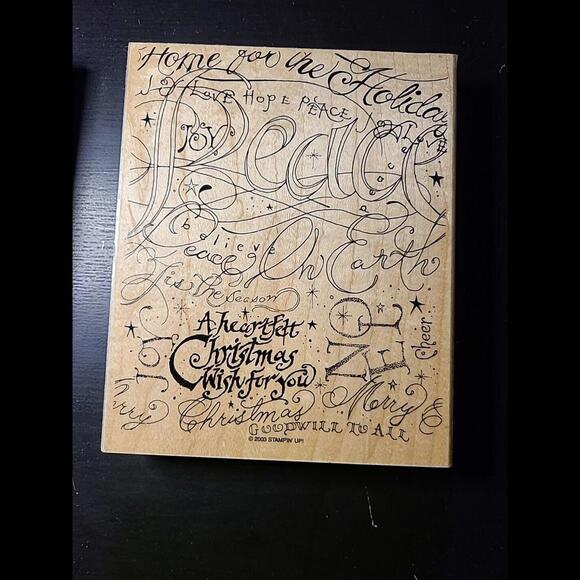 Home for the Holidays
JOY LOVE HOPE PEACE
JOY
Peace
believe
Peace On Earth
Tis the Season
A heartfelt
Christmas
Wish for you
NO
EL
Cheer
JOY
Merry
Christmas
Merry
GOODWILL TO ALL
© 2003 STAMPIN' UP!